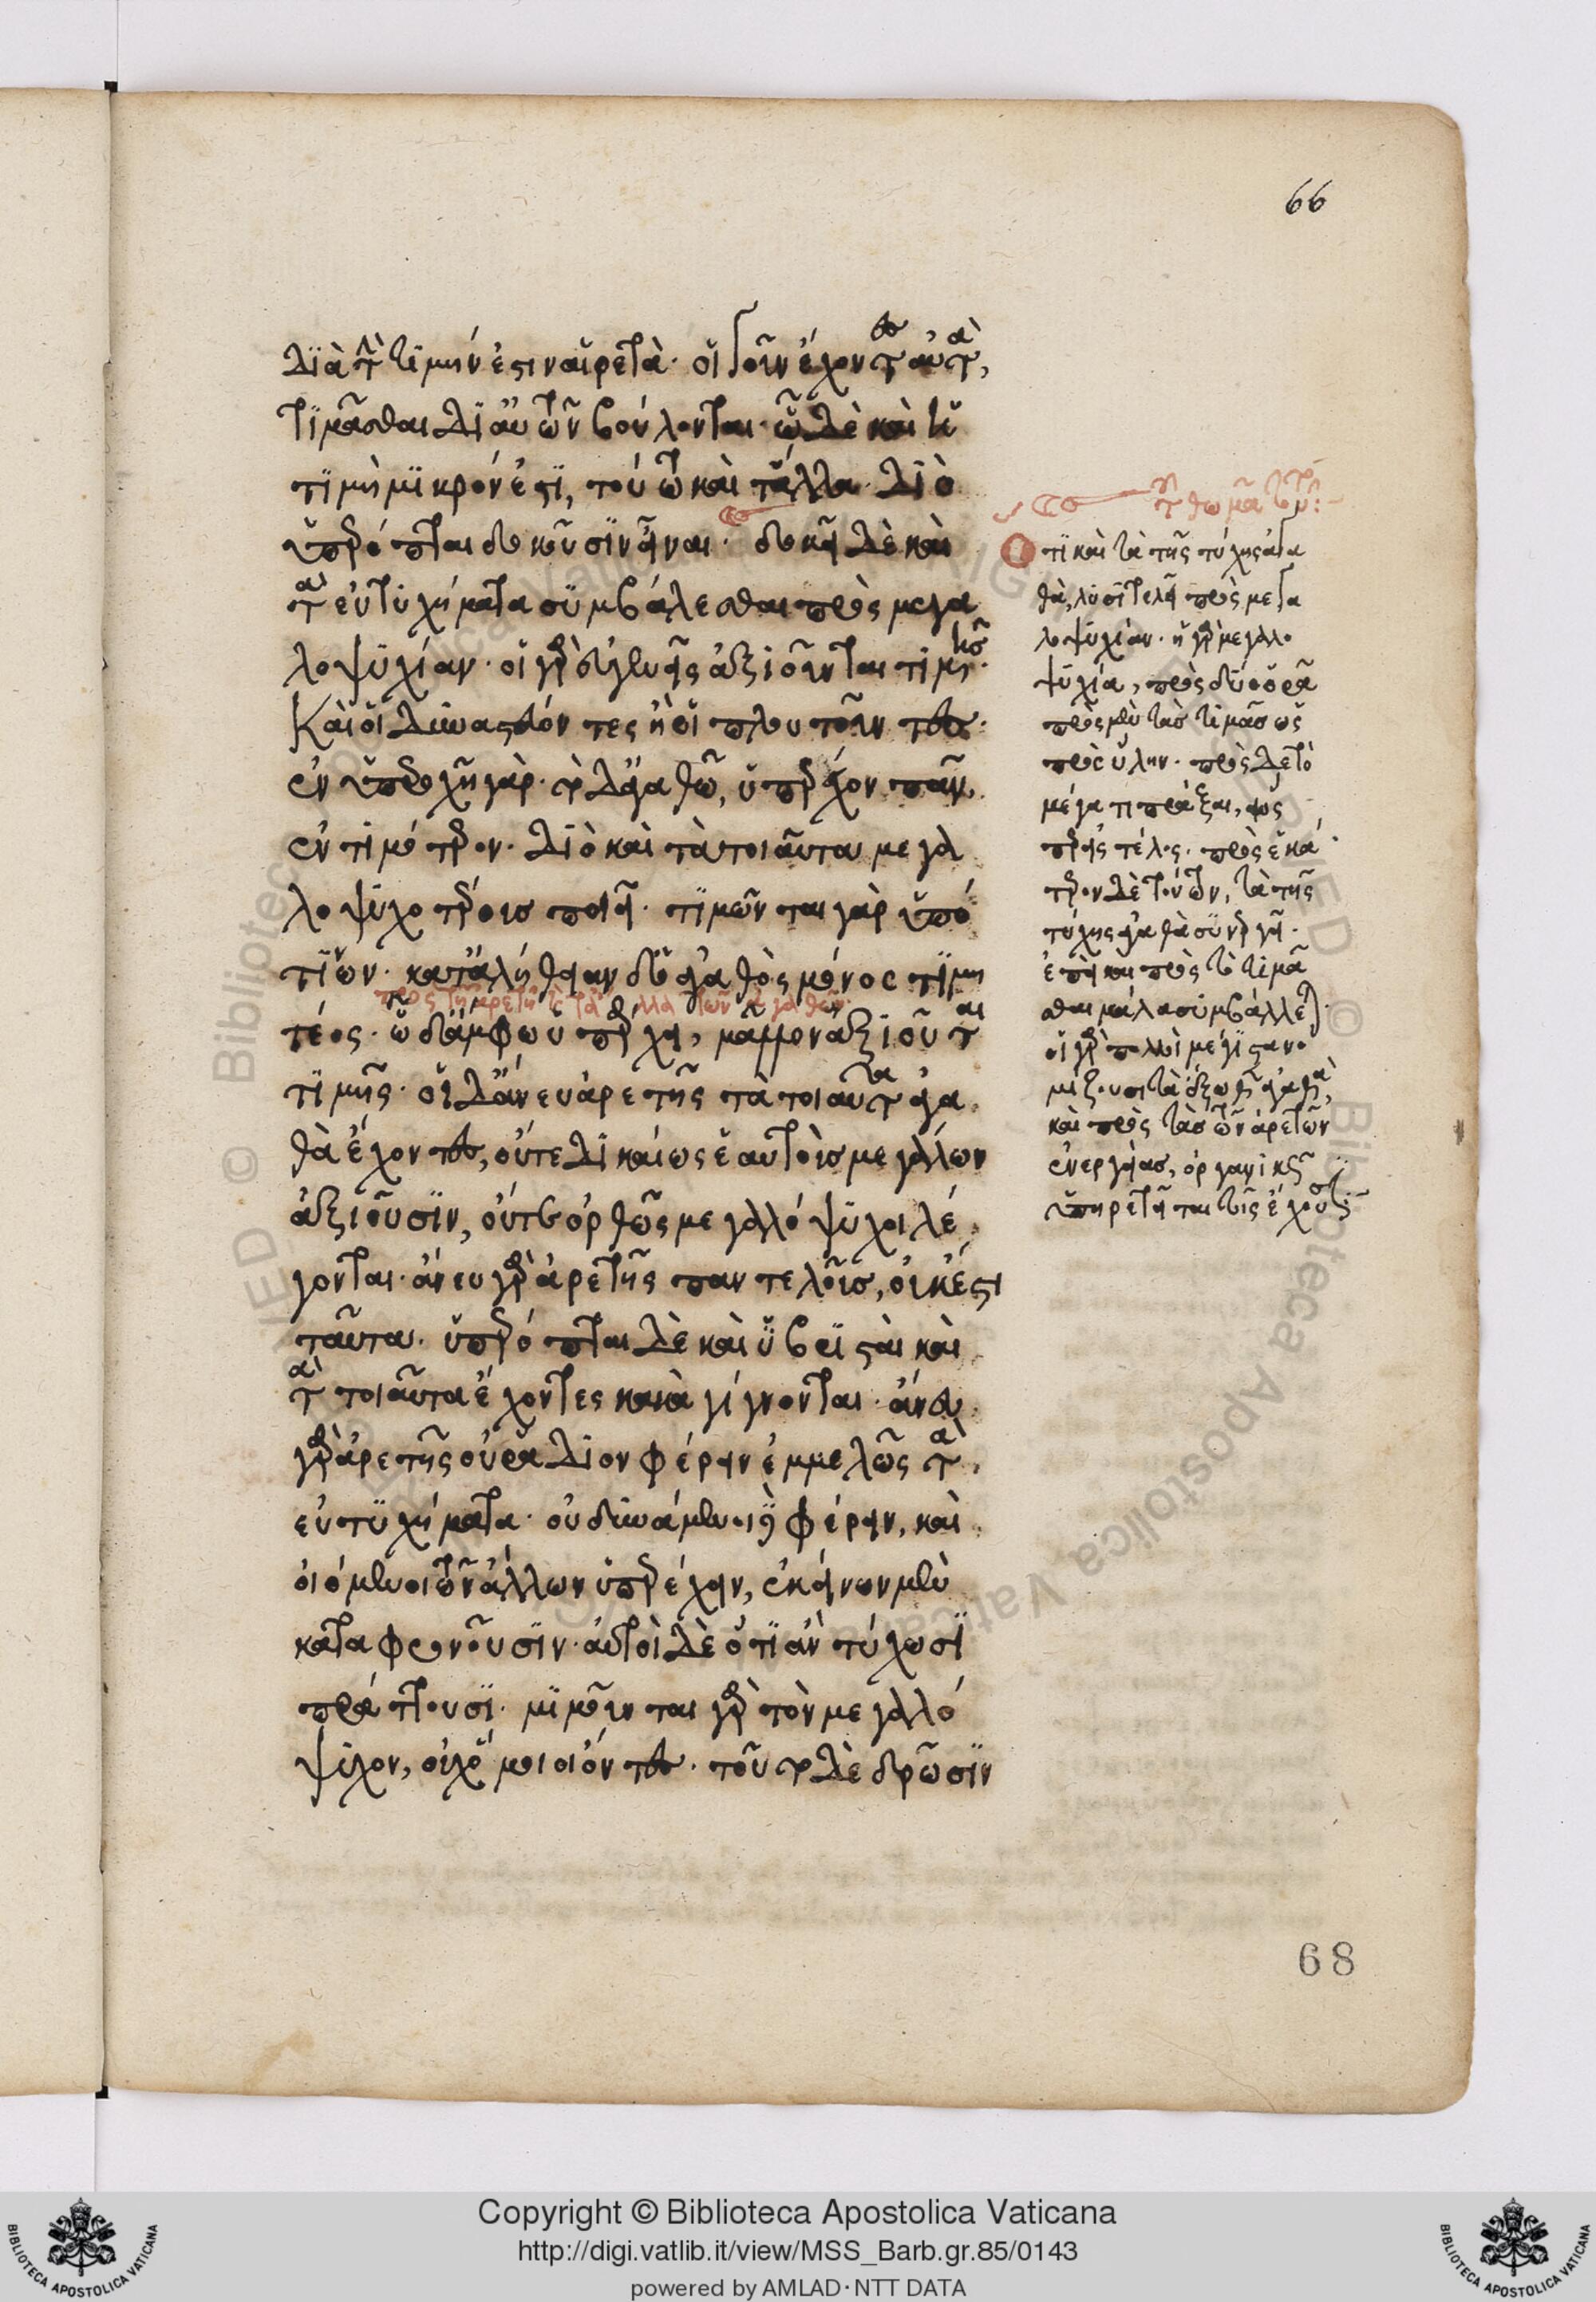 66
διὰ τὴν τιμήν ἐστιν αἱρετά· οἱ γοῦν ἔχοντες αὐτὰ,
τιμᾶσθαι δι' αὐτῶν βούλονται· ᾧ δὲ καὶ ἡ
τιμὴ μικρόν ἐστι, τούτω καὶ τἄλλα· διὸ
ὑπερόπται δοκοῦσιν εἶναι· δοκεῖ δὲ καὶ
τὰ εὐτυχήματα συμβάλεσθαι πρὸς μεγα
λοψυχίαν· οἱ γὰρ εὐγενεῖς ἀξιοῦνται τιμῆς·
Καὶ οἱ δυναστεύοντες ἢ οἱ πλουτοῦντες·
ἐν ὑπεροχῇ γὰρ· τὸ δ' ἀγαθῶ, ὑπερέχον πᾶν,
ἐντιμότερον· διὸ καὶ τὰ τοιαῦτα μεγα
λοψυχοτέρους ποιεῖ· τιμῶνται γὰρ ὑπό
τινων· κατ' ἀλήθειαν δ' ὁ ἀγαθὸς μόνος τιμη
πρὸς τῇ ἀρετῇ καὶ τὰ ἄλλα τῶν ἀγαθῶν·
τέος· ᾧ δ' ἄμφω ὑπάρχει, μᾶλλον ἀξιοῦται
τιμῆς· οἱ δ' ἄνευ ἀρετῆς τὰ τοιαῦτα ἀγα
θὰ ἔχοντες, οὔτε δικαίως ἑαυτοὺς μεγάλων
ἀξιοῦσιν, οὔτε ὀρθῶς μεγαλόψυχοι λέ
γονται· ἄνευ γὰρ ἀρετῆς παντελοῦς, οὐκ ἔστι
ταῦτα· ὑπερόπται δὲ καὶ ὑβρισταὶ καὶ
τὰ τοιαῦτα ἔχοντες κακὰ γίγνονται· ἄνευ
γὰρ ἀρετῆς οὐ ῥάδιον φέρειν ἐμμελῶς τὰ
εὐτυχήματα· οὐ δυνάμενοι δὲ φέρειν, καὶ
οἰόμενοι τῶν ἄλλων ὑπερέχειν, ἐκείνων μὲν
καταφρονοῦσιν· αὐτοὶ δὲ ὅ τι ἂν τύχωσι
πράττουσι· μιμοῦνται γὰρ τὸν μεγαλό
ψυχον, οὐχ ὅμοιοι ὄντες· τοῦτο δὲ δρῶσιν
τοῦ θωμᾶ
Ὅτι καὶ τὰ τῆς τύχης ἀγα
θὰ, λυσιτελεῖ πρὸς μεγα
λοψυχίαν· ἡ γὰρ μεγαλο
ψυχία, πρὸς δύο ὁρᾶ
πρὸς μὲν τὰς τιμὰς ὡς
πρὸς ὕλην· πρὸς δὲ τὸ
μέγα τι πρᾶξαι, ὡς
πρὸς τέλος· πρὸς ἑκά
τερον δὲ τούτων, τὰ τῆς
τύχης ἀγαθὰ συνεργεῖ·
ἐπεὶ καὶ πρὸς τὸ τιμᾶ
σθαι μάλα συμβάλλεται·
οἱ γὰρ πολλοὶ μέγιστα νο
μίζουσι τὰ ἔξωθεν ἀγαθὰ,
καὶ πρὸς τὰς τῶν ἀρετῶν
ἐνεργείας, ὀργανικῶς
ὑπηρετεῖται τοῖς ἔχουσι
68
Copyright © Biblioteca Apostolica Vaticana
http://digi.vatlib.it/view/MSS_Barb.gr.85/0143
powered by AMLAD·NTT DATA